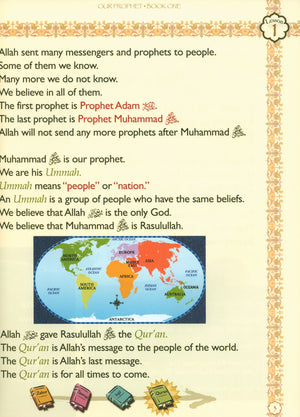 OUR PROPHET • BOOK ONE
Lesson
1
Allah sent many messengers and prophets to people.
Some of them we know.
Many more we do not know.
We believe in all of them.
The first prophet is Prophet Adam
The last prophet is Prophet Muhammad ﷺ.
Allah will not send any more prophets after Muhammad ﷺ.
Muhammad ﷺ is our prophet.
We are his Ummah.
Ummah means “people” or “nation.”
An Ummah is a group of people who have the same beliefs.
We believe that Allah is the only God.
We believe that Muhammad ﷺ is Rasulullah.
ARCTIC OCEAN
NORTH AMERICA
EUROPE
ASIA
MIDDLE EAST
ATLANTIC OCEAN
PACIFIC OCEAN
AFRICA
SOUTH AMERICA
INDIAN OCEAN
OCEANIA
PACIFIC OCEAN
AUSTRALIA
ANTARCTICA
Allah gave Rasulullah ﷺ the Qur'an.
The Qur'an is Allah's message to the people of the world.
The Qur'an is Allah's last message.
The Qur'an is for all times to come.
5